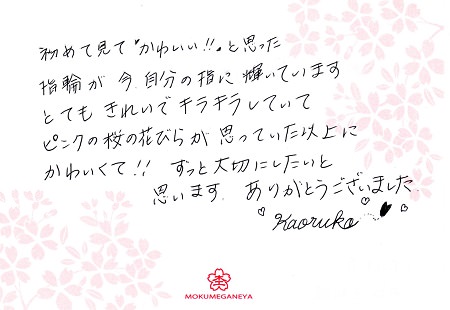 初めて見て"かわいい!!"と思った
指輪が今、自分の指に輝いています
とてもきれいでキラキラしていて
ピンクの桜の花びらが思っていた以上に
かわいくて!! ずっと大切にしたいと
思います。ありがとうございました。
Kaoruko
MOKUMEGANEYA